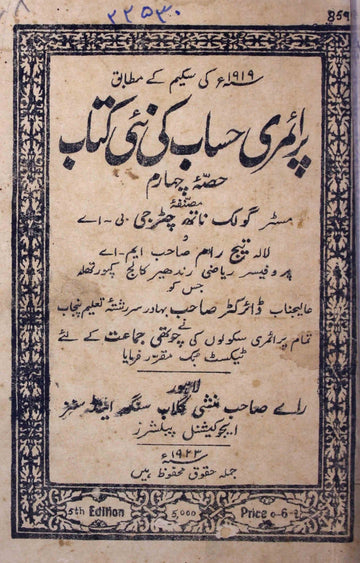 ۲۲۵۳۰
859
سنہ ۱۹۱۹ء کی سکیم کے مطابق
پرائمری حساب کی نئی کتاب
حصۂ چہارم
مصنفۂ
مسٹر گولک ناتھ چٹرجی بی - اے
و
لالہ تیج رام صاحب ایم - اے
پروفیسر ریاضی رندھیر کالج کپورتھلہ
جس کو
عالیجناب ڈائرکٹر صاحب بہادر سررشتہ تعلیم پنجاب
نے
تمام پرائمری سکولوں کی چوتھی جماعت کے لئے
ٹیکسٹ بک مقرر فرمایا
لاہور
رائے صاحب منشی گلاب سنگھ اینڈ سنز
ایجوکیشنل پبلشرز
سنہ ۱۹۲۳ء
جملہ حقوق محفوظ ہیں
5th Edition 5,000 Price 0-6-